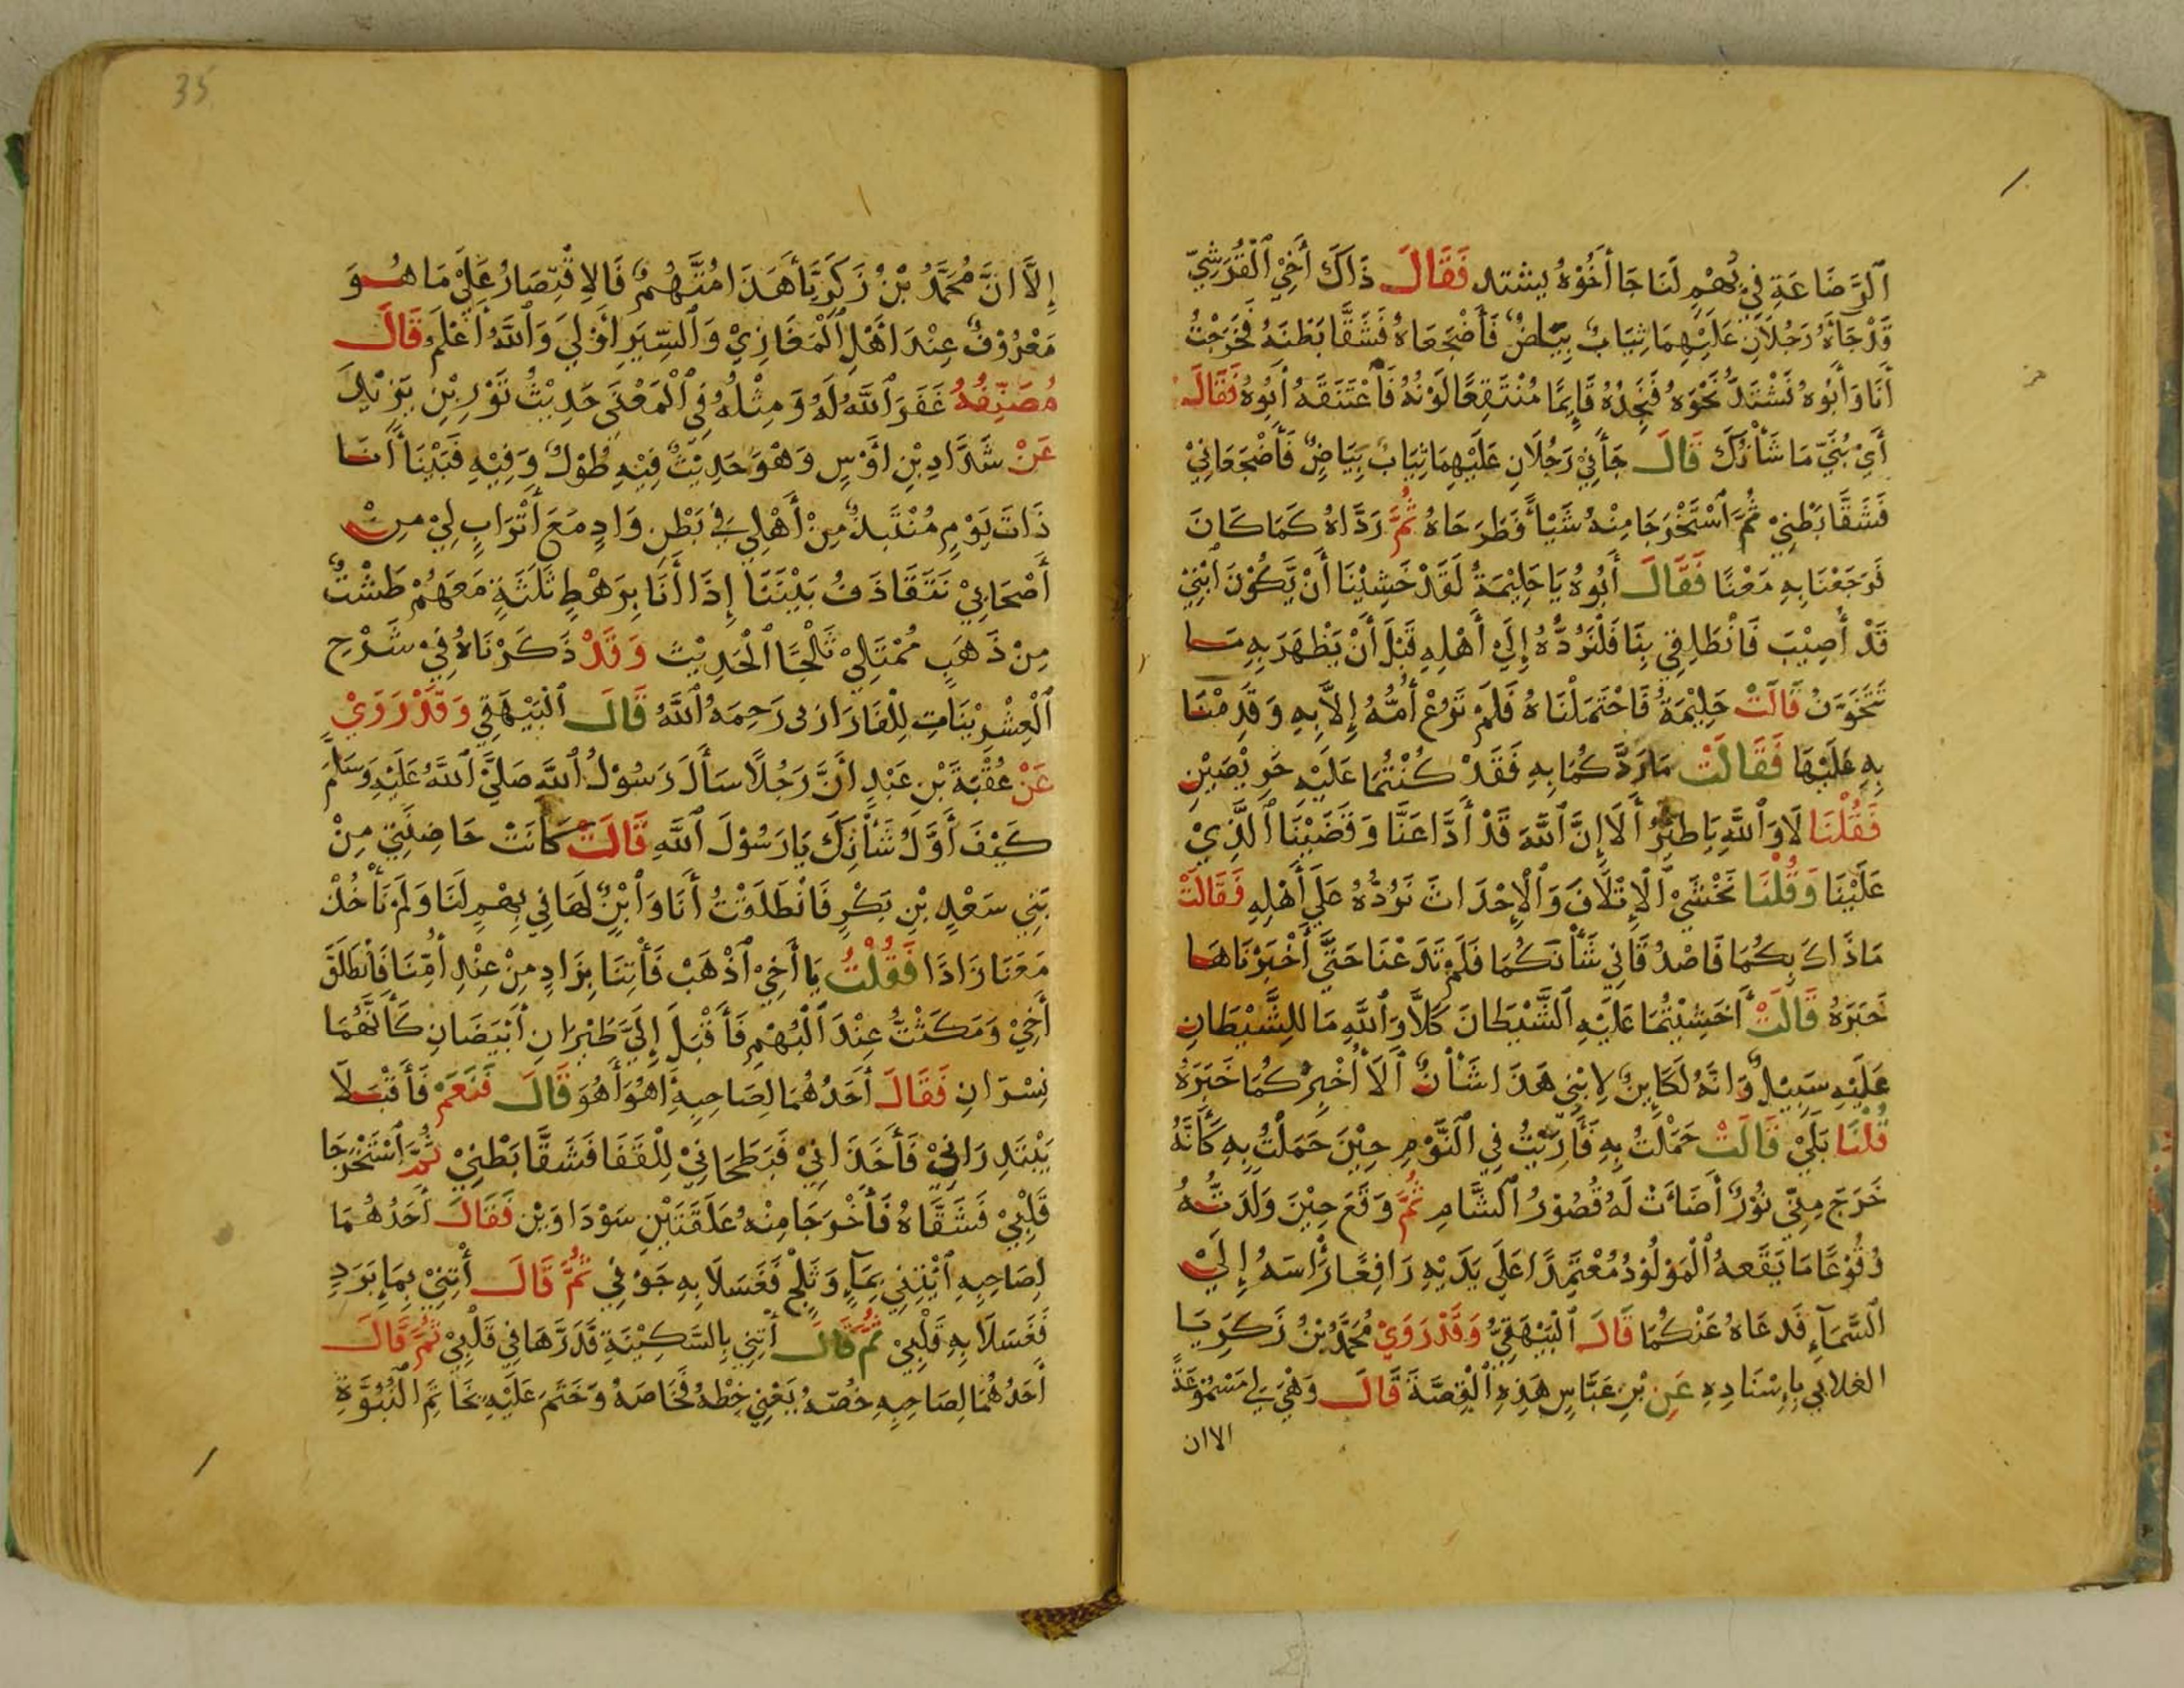 اَلرَّضَاعَةِ فِي بُهْمٍ لَنَا جَا أَخُوْهُ يشتد فَقَالَ ذَاكَ أَخِيْ اَلْقُرَشِيّ
قَدْ جَاَهُ رَجُلَانِ عَلَيْهِمَا ثِيَابٌ بِيَاضٌ فَأَضْجَعَاهُ فَشَقَّا بَطْنَهُ فَخَرَجْتُ
أَنَا وَأَبُوهُ نَشْتَدُّ نَحْوَهُ فَنَجِدُهُ قَايِمًا مُنْتَقِعًا لَوْنُهُ فَاَعْتَنَقَهُ أَبُوهُ فَقَالَ
أَيْ بُنَيَّ مَا شَأْنُكَ قَالَ جَأَنِيْ رَجُلَانِ عَلَيْهِمَا ثِيَابٌ بِيَاضٌ فَأَضْجَعَانِيْ
فَشَقَّا بَطْنِيْ ثُمَّ اَسْتَخْرَجَا مِنْهُ شَيْأً فَطَرَحَاهُ ثُمَّ رَدَّاهُ كَمَا كَانَ
فَرَجَعْنَا بِهِ مَعْنَا فَقَالَ أَبُوهُ يَا حَلِيْمَةُ لَقَدْ خَشِيْنَا أَنْ يَّكُوْنَ اَبْنِيْ
قَدْ أُصِيْبَ فَانْطَلِقِي بِنَا فَلْنَرُدُّهُ إِلَي أَهْلِهِ قَبْلَ أَنْ يَظْهَرَ بِهِ مَا
نَتَخَوَّنُ قَالَتْ حَلِيْمَةُ فَاحْتَمَلْنَاهُ فَلَمْ تَرُعْ أُمُّهُ إِلاَّ بِهِ وَقَدِمْنَا
بِهِ عَلَيْهَا فَقَالَتْ مَا رَدَّكُمَا بِهِ فَقَدْ كُنْتُمَا عَلَيْهِ حَرِيْصَيْنِ
فَقُلْنَا لَا وَاَللَّهِ يَا ظِئْرُ أَلَا إِنَّ اَللَّهَ قَدْ أَدَّا عَنَّا وَقَضَيْنَا اَلَّذِيْ
عَلَيْنَا وَقُلْنَا نَخْشَيْ اَلْإِتْلَافَ وَالْإِحْدَاثَ نَرُدُّهُ عَلَي أَهْلِهِ فَقَالَتْ
مَا ذَاكَ بِكُمَا فَاصْدُقَانِي شَأْنَكُمَا فَلَمْ تَدَعْنَا حَتَّي أَخْبَرْنَاهَا
خَبَرَهُ قَالَتْ أَخَشِيْتُمَا عَلَيْهِ اَلشَّيْطَانَ كَلاَّ وَاَللَّهِ مَا لِلشَّيْطَانِ
عَلَيْهِ سَبِيْلٌ وَانَّهُ لَكَاٍينٌ لِاٍبْنِي هَذَا شَأْنٌ اَلَا أُخْبِرُكُمَا خَبَرَهُ
قُلْنَا بَلَيْ قَالَتْ حَمَلْتُ بِهِ فَأُرِيْتُ فِي اَلنَّوْمِ حِيْنَ حَمَلْتُ بِهِ كَأَنَّهُ
خَرَجَ مِنِّي نُوْرٌ أَضَاَتْ لَهُ قُصُوْرُ اَلشَّامِ ثُمَّ وَقَعَ حِيْنَ وَلَدَتُّهُ
وُقُوْعًا مَا يَقَعهُ اَلْمَوْلُوْدُ مُعْتَمِدًا عَلَي يَدَيْهِ رَافِعًا رَأْسَهُ إِلَيْ
اَلسَّمَآءِ فَدَعَاهُ عَنْكُمَا قَالَ اَلْبَيْهَقِيُّ وَقَدْ رَوَيْ مُحَمَّدُ بْنُ زَكَرِيَا
الغلابي بِاِسْنَادِهِ عَنِ بْنِ عَبَّاسٍ هَذِهِ اَلْقِصَّةَ قَالَ وَهْيَ لِي مَسْمُوْعَةٌ
الاان
35
إِلاَّ انَّ مُحَمَّدُ بْنُ زَكَرِيَّا هَذَا مُتَّهُمٌ فَالاِقْتِصَارُ عَلَيْ مَا هُوَ
مَعْرُوْفٌ عِنْدَ اَهْلِ اَلْمَغَازِيْ وَالسِّيَرِ اَوْلَي وَاَللَّهُ أَعْلَمُ قَالَ
مُصَنِّفُهُ غَفَرَ اَللَّهُ لَهُ وَمِثْلُهُ فِي اَلْمَعْنَي حَدِيْثُ ثَوْرِ بْنِ يَزِيْدَ
عَنْ شَدَّادِ بْنِ اَوْسٍ وَهْوَ حَدِيْثٌ فِيْهِ طُوْلٌ وَفِيْهِ فَبَيْنَا أَنَا
ذَاتَ يَوْمٍ مُنْتَبِذٌ مِنْ أَهْلِي فِي بَطْنِ وَادٍ مَعَ أَتْرَابٍ لِيْ مِنْ
أَصْحَابِيْ نَتَقَاذَفُ بَيْنَنَا إِذَا أَنَا بِرَهْطٍ ثَلَثَةٍ مَعَهُمْ طَشْتٌ
مِنْ ذَهَبٍ مُمْتَلِيْ ثَلْجًا اَلْحَدِيْثَ وَقَدْ ذَكَرْنَاهُ فِيْ شَرْحِ
اَلْعِشْرِيْنَاتِ لِلْفَارَازى رَحِمَهُ اَللَّهُ قَالَ اَلْبَيْهَقِي وَقَدْ رَوَيْ
عَنْ عُقْبَةَ بْنِ عَبْدٍ أَنَّ رَجُلاً سَأَلَ رَسُوْلُ اَللَّهِ صَلَيَّ اَللَّهُ عَلَيْهِ وَسَلَّمَ
كَيْفَ أَوَّلُ شَأْنِكَ يَا رَسُوْلَ اَللَّهِ قَالَتْ كَانَتْ حَاضِنَتِيْ مِنْ
بَنِي سَعْدِ بْنِ بَكْرٍ فَانْطَلَقْتُ أَنَا وَاَبْنٌ لَهَا فِي بِهْمٍ لَنَا وَلَمْ نَأْخُذْ
مَعَنَا زَادًا فَقُلْتُ يَا أَخِيْ اَذْهَبْ فَأْتِنَا بِزَادٍ مِنْ عِنْدِ أُمِّنَا فَانْطَلَقَ
أَخِيْ وَمَكَثْتُ عِنْدَ اَلْبُهْمِ فَأَقْبَلَ إِلَيَّ طَيْرَانِ اَبْيَضَانِ كَأَنَّهُمَا
نِسْرَانِ فَقَالَ أَحَدُهُمَا لِصَاحِبِهِ أَهُوَ أَهُوَ قَالَ فَنَعَمْ فَأَقْبَلَا
يَبْتَدِرَانِيْ فَأَخَذَانِيْ فَبَطَحَانِيْ لِلْقَفَا فَشَقَّا بَطْنِيْ ثُمَّ اَسْتَخْرَجَا
قَلْبِيْ فَشَقَّاهُ فَأَخْرَجَا مِنْهُ عَلَقَتَيْنِ سَوْدَاوَيْنِ فَقَالَ أَحَدُهُمَا
لِصَاحِبِهِ اَئْتِنِي بِمَآءٍ وَثَلْجٍ فَغَسَلَا بِهِ جَوْفِيْ ثُمَّ قَالَ أْتِنِيْ بِمَاٍ بَرَدٍ
فَغَسَلَا بِهِ قَلْبِيْ ثُمَّ قَالَ أْتِنِي بِالسَّكِيْنَةِ فَذَرَّهَا فِي قَلْبِيْ ثُمَّ قَالَ
أَحَدُهُمَا لِصَاحِبِهِ حُصّهُ يَعْنِي خِطْهُ فَحَاصَهُ وَخَتَمَ عَلَيْهِ بَخَاتَمِ اَلْنُبُوَّةِ